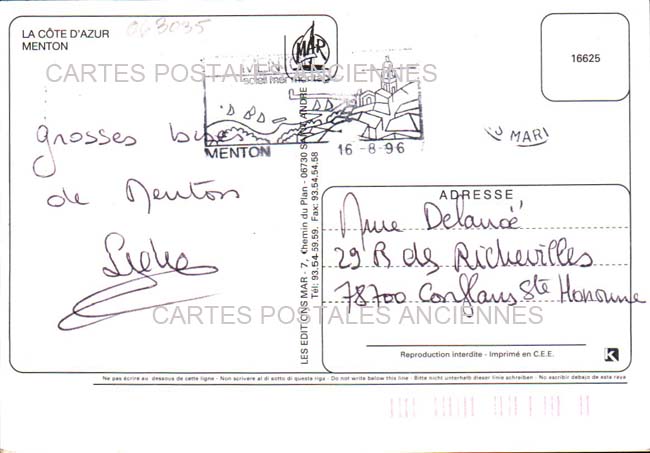 LA CÔTE D'AZUR
MENTON
063035
MAR
16625
CARTES POSTALES ANCIENNES
MENTON
16-8-96
MARI
grosses bises
de Menton
LES EDITIONS MAR - 7, Chemin du Plan - 06730 SAINT-ANDRÉ
Tél: 93.54.59.59. Fax: 93.54.54.58
ADRESSE
Mme Delancé
29 R des Richevilles
78700 Conflans Ste Honorine
CARTES POSTALES ANCIENNES
Reproduction interdite - Imprimé en C.E.E.
K
Ne pas écrire au dessous de cette ligne - Non scrivere al di sotto di questa riga - Do not write below this line - Bitte nicht unterhalb dieser linie schreiben - No escribir debajo de esta raya